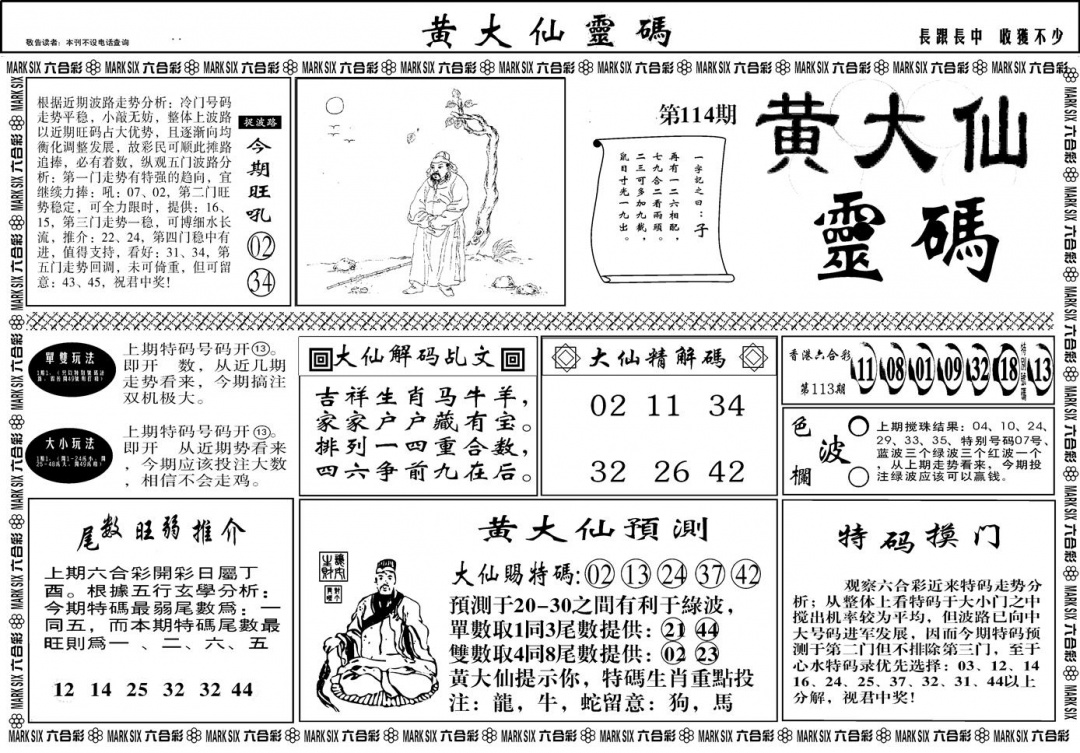 敬告读者：本刊不设电话查询
黄大仙靈碼
長跟長中 收獲不少
MARK SIX 六合彩 MARK SIX 六合彩 MARK SIX 六合彩 MARK SIX 六合彩 MARK SIX 六合彩 MARK SIX 六合彩 MARK SIX 六合彩 MARK SIX 六合彩 MARK SIX 六合彩 MARK SIX 六合彩 MARK SIX 六合彩
根据近期波路走势分析：冷门号码
走势平稳，小敲无妨，整体上波路
以近期旺码占大优势，且逐渐向均
衡化调整发展，故彩民可顺此摊路
追捧，必有着数，纵观五门波路分
析：第一门走势有特强的趋向，宜
继续力捧：吼：07、02，第二门旺
势稳定，可全力限时，提供：16、
15，第三门走势一稳，可博细水长
流，推介：22、24，第四门稳中有
进，值得支持，看好：31、34，第
五门走势回调，未可倚重，但可留
意：43、45，祝君中奖！
捉波路
今期旺吼
02
34
第114期
一字記之曰：子
再有一二六相配，
七九合二看兩頭。
二三可多加九截，
鼠目寸光一九出。
黄大仙
靈碼
單雙玩法
上期特码号码开⑬。
即开 数，从近几期
走势看来，今期搞注
双机极大。
大小玩法
上期特码号码开⑬。
即开 从近期势看来
，今期应该投注大数
，相信不会走鸡。
大仙解码乩文
吉祥生肖马牛羊，
家家户户藏有宝。
排列一四重合数，
四六争前九在后。
大仙精解碼
02 11 34
32 26 42
香港六合彩
第113期
11 08 01 09 32 18 特别號碼 13
色波欄
上期搅珠结果：04、10、24、
29、33、35、特别号码07号、
蓝波三个绿波三个红波一个
，从上期走势看来，今期投
注绿波应该可以赢钱。
尾数旺弱推介
上期六合彩開彩日屬丁
酉。根據五行玄學分析：
今期特碼最弱尾數爲：一
同五，而本期特碼尾數最
旺則爲一 、二、六、五
12 14 25 32 32 44
黄大仙預測
大仙賜特碼：02 13 24 37 42
預測于20-30之間有利于綠波，
單數取1同3尾數提供：21 44
雙數取4同8尾數提供：02 23
黄大仙提示你，特碼生肖重點投
注：龍，牛，蛇留意：狗，馬
特码摸门
观察六合彩近来特码走势分
析；从整体上看特码于大小门之中
搅出机率较为平均，但波路已向中
大号码进军发展，因而今期特码预
测于第二门但不排除第三门，至于
心水特码录优先选择：03、12、14
16、24、25、37、32、31、44以上
分解，祝君中奖！
MARK SIX 六合彩 MARK SIX 六合彩 MARK SIX 六合彩 MARK SIX 六合彩 MARK SIX 六合彩 MARK SIX 六合彩 MARK SIX 六合彩 MARK SIX 六合彩 MARK SIX 六合彩 MARK SIX 六合彩 MARK SIX 六合彩